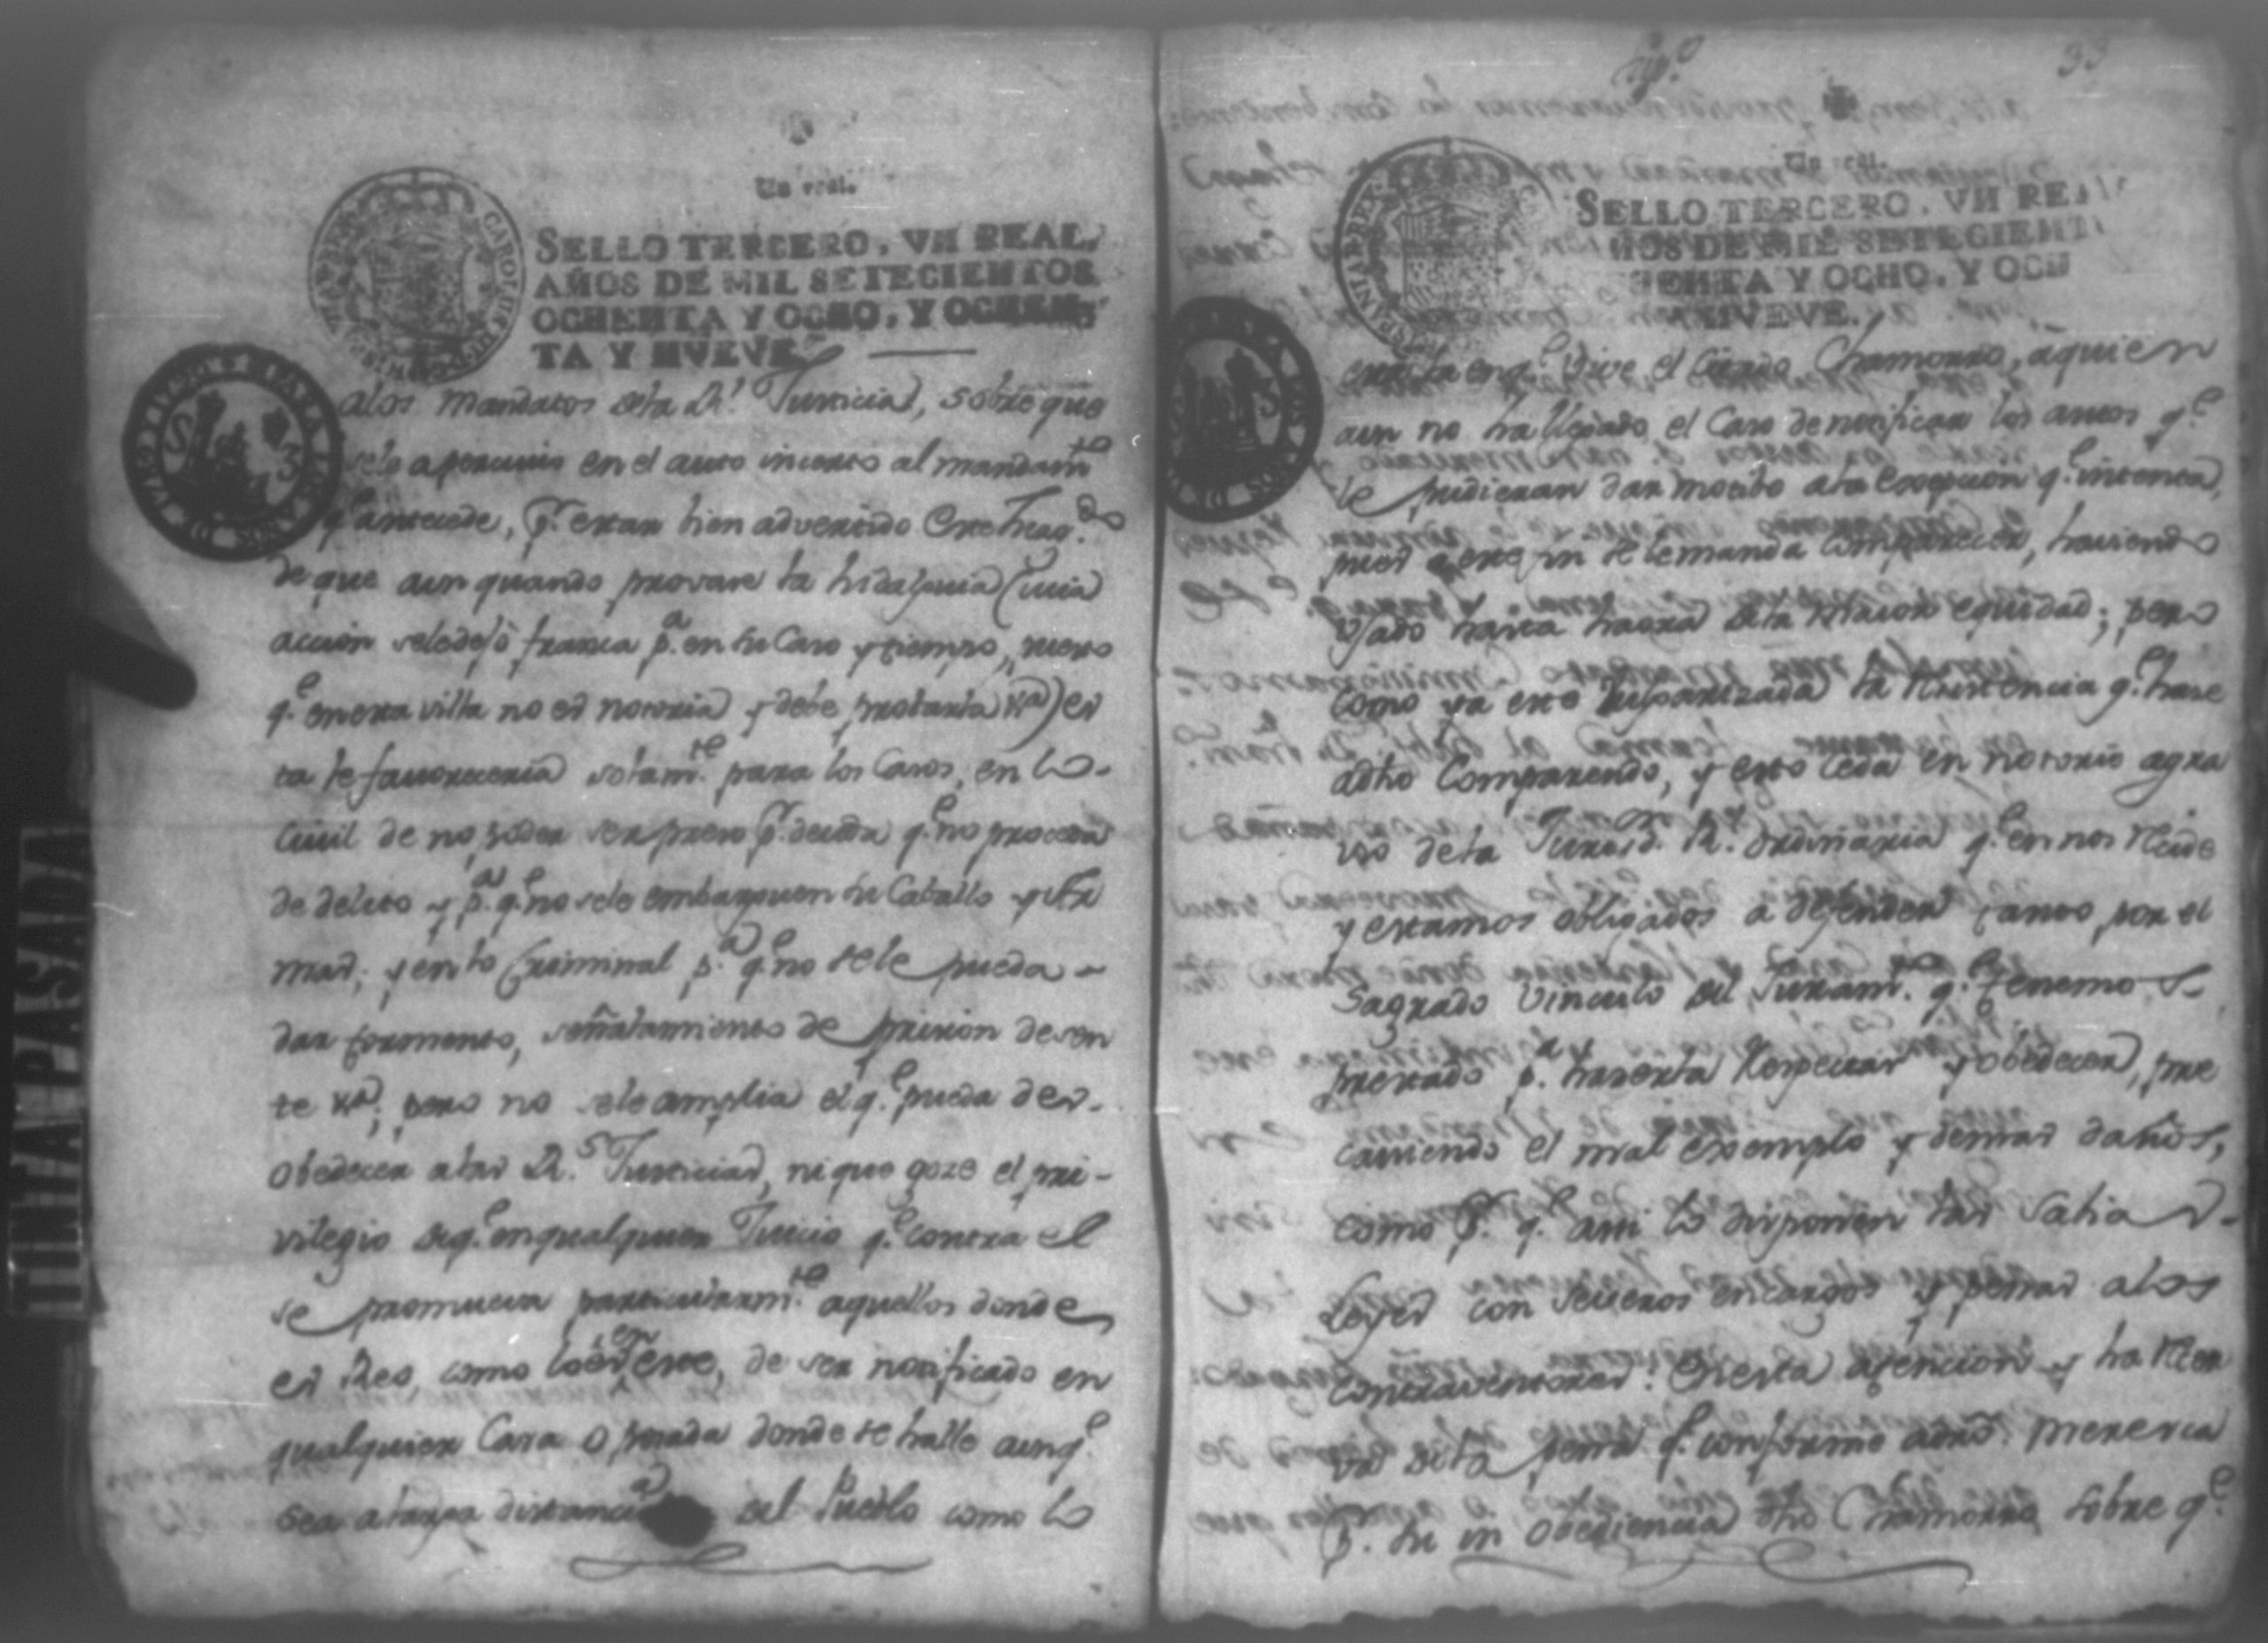 Un real.
SELLO TERCERO, VN REAL,
AÑOS DE MIL SETECIENTOS
OCHENTA Y OCHO, Y OCHEN-
TA Y NVEVE.
a los mandatos de la Rl. Justicia, sobre que
se le apercivio en el auto incerto al mandamto
qe. antecede, pr. estar bien advertido este Juzgdo
de que aun quando provare la hidalguia (cuia
accion se le dejó franca pa. en su Caso y tiempo, puesto
qe. en esta villa no es notoria y debe probarla) es
ta le favoreceria solamte. para los Casos, en lo
Civil de no poder ser preso pr. deuda qe. no proceda
de delito y pa. qe. no se le embarguen su Caballo y Ar
mas; y en lo Criminal pa. qe. no se le pueda
dar tormento, señalamiento de prision desen
te &a; pero no se le amplia el qe. pueda des-
obedecer a las Rs. Justicias, ni que goze el pri-
vilegio de qe. en qualquier Juicio qe. contra el
se promueva particularmte. aquellos donde
es Reo, como lo es en este, de ser notificado en
qualquier Casa o posada donde se halle aunqe.
sea a larga distancia del Pueblo como lo
33
Un real.
SELLO TERCERO, VN REAL
ÑOS DE MIL SETECIENT
HENTA Y OCHO, Y OCH
NVEVE.
en qe. vive el citado Chamorro, a quien
aun no ha llegado el Caso de notificar los autos qe.
le pudieran dar motibo a la excepcion qe. intenta,
pues a este fin se le manda comparecer, haviendo
usado hasta haora de la maior equidad; pero
como ya este Juzga la resistencia qe. hace
a dho Comparendo, y esto ceda en notorio agra
vio de la Jurisdon. Rl. ordinaria qe. en nos recide
y estamos obligados a defender tanto por el
Sagrado Vinculo del Juramto. qe. tenemos
prestado pa. hacerla Respectar y obedecer, pre
caviendo el mal exemplo y demas daños,
como pr. qe. asi lo disponen las Sabias
Leyes con severos encargos y penas a los
contraventores: En esta atencion y ha reser
va de la pena qe. conforme a dro. meresca
pr. su in obediencia dho Chamorro sobre qe.